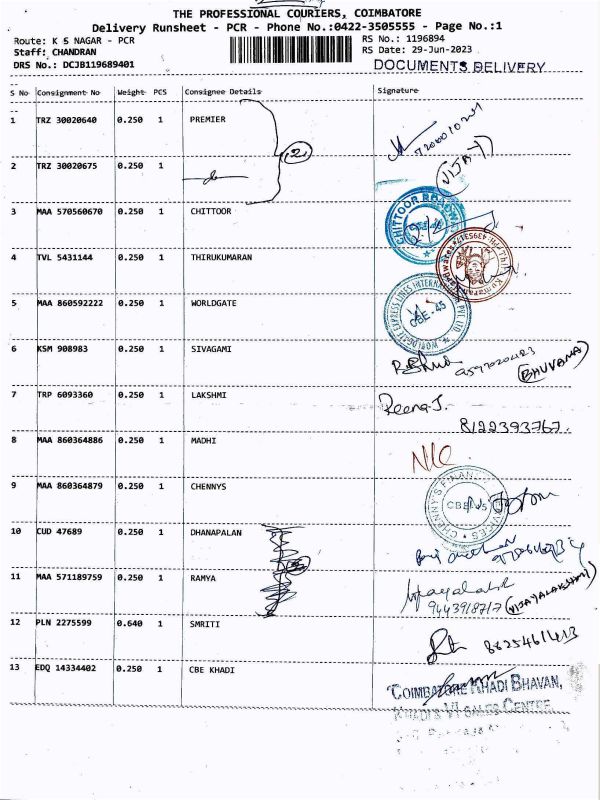 THE PROFESSIONAL COURIERS, COIMBATORE
Delivery Runsheet - PCR - Phone No.:0422-3505555 - Page No.:1
Route: K S NAGAR - PCR
RS No.: 1196894
Staff: CHANDRAN
RS Date: 29-Jun-2023
DRS No.: DCJB119689401
DOCUMENTS DELIVERY
S No Consignment No Weight PCS Consignee Details Signature
1 TRZ 30020640 0.250 1 PREMIER
2 TRZ 30020675 0.250 1
(VIJAY)
3 MAA 570560670 0.250 1 CHITTOOR
CHITTOOR ROADWAYS
4 TVL 5431144 0.250 1 THIRUKUMARAN
5 MAA 860592222 0.250 1 WORLDGATE
WORLDGATE EXPRESS LINES INTERNATIONAL PVT. LTD.
CBE - 45
6 KSM 908983 0.250 1 SIVAGAMI
(BHUVANA)
7 TRP 6093360 0.250 1 LAKSHMI
Reena.J.
8122393767.
8 MAA 860364886 0.250 1 MADHI
9 MAA 860364879 0.250 1 CHENNYS
10 CUD 47689 0.250 1 DHANAPALAN
11 MAA 571189759 0.250 1 RAMYA
9443918717 (VIJAYALAKSHMI)
12 PLN 2275599 0.640 1 SMRITI
13 EDQ 14334402 0.250 1 CBE KHADI
COIMBATORE KHADI BHAVAN,
KHADI & VI SALES CENTRE,